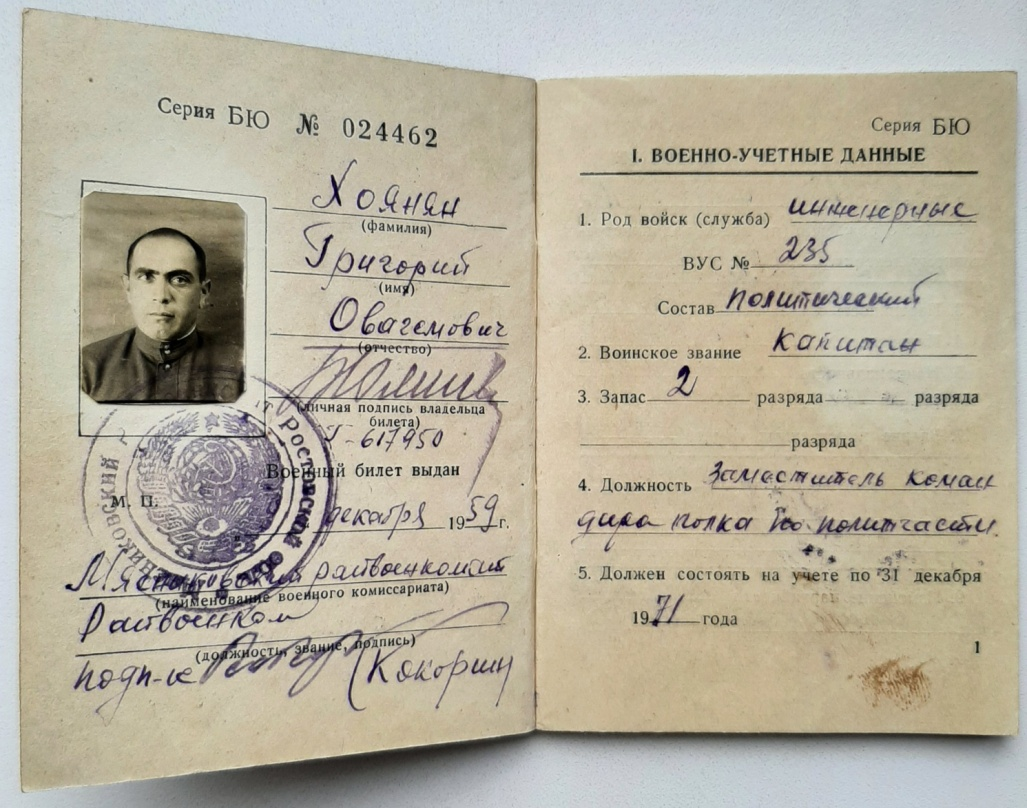 Серия БЮ № 024462
Хоянян
(фамилия)
Григорий
(имя)
Овагемович
(отчество)
(личная подпись владельца
билета)
Г-617950
Военный билет выдан
М. П.
декабря 1959 г.
Мясниковский райвоенкомат
(наименование военного комиссариата)
Райвоенком
(должность, звание, подпись)
подп-к (Кокорин)
Ростовской
Серия БЮ
I. ВОЕННО-УЧЕТНЫЕ ДАННЫЕ
1. Род войск (служба) инженерные
ВУС № 235
Состав политический
2. Воинское звание капитан
3. Запас 2 разряда разряда
разряда
4. Должность Заместитель коман
дира полка по политчасти
5. Должен состоять на учете по 31 декабря
1971 года
1